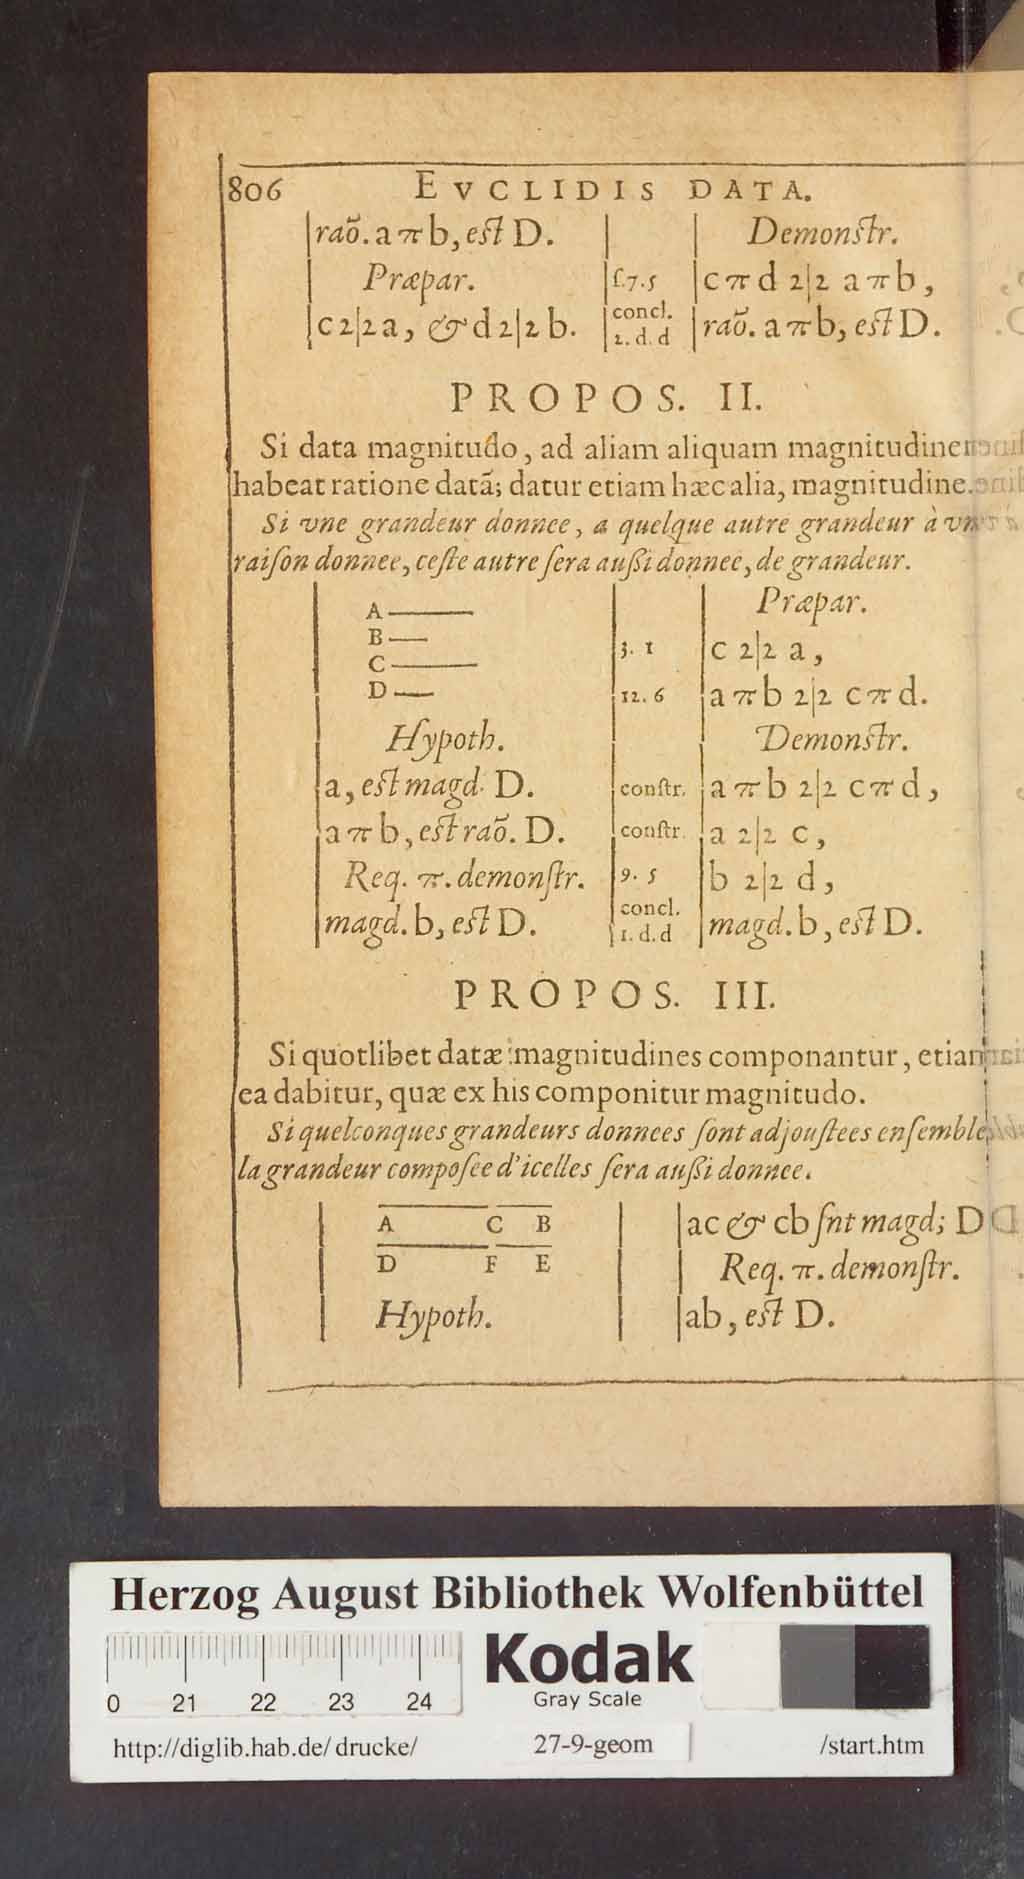 806 EVCLIDIS DATA.
raõ. a π b, est D.
Præpar.
c 2|2 a, & d 2|2 b.
Demonstr.
f.7.5 c π d 2|2 a π b,
concl.
2. d. d raõ. a π b, est D.
PROPOS. II.
Si data magnitudo, ad aliam aliquam magnitudinem
habeat ratione datã; datur etiam hæc alia, magnitudine.
Si vne grandeur donnee, a quelque autre grandeur à vne
raiſon donnee, ceſte autre ſera auſſi donnee, de grandeur.
A
B
C
D
Hypoth.
a, est magd. D.
a π b, est raõ. D.
Req. π. demonſtr.
magd. b, est D.
Præpar.
3. 1 c 2|2 a,
12. 6 a π b 2|2 c π d.
Demonstr.
conſtr. a π b 2|2 c π d,
conſtr. a 2|2 c,
9. 5 b 2|2 d,
concl.
1. d. d magd. b, est D.
PROPOS. III.
Si quotlibet datæ magnitudines componantur, etiam
ea dabitur, quæ ex his componitur magnitudo.
Si quelconques grandeurs donnees ſont adjouſtees enſemble,
la grandeur compoſee d'icelles ſera auſſi donnee.
A C B
D F E
Hypoth.
ac & cb ſnt magd; D
Req. π. demonſtr.
ab, est D.
Herzog August Bibliothek Wolfenbüttel
Kodak
Gray Scale
0 21 22 23 24
http://diglib.hab.de/drucke/ 27-9-geom /start.htm